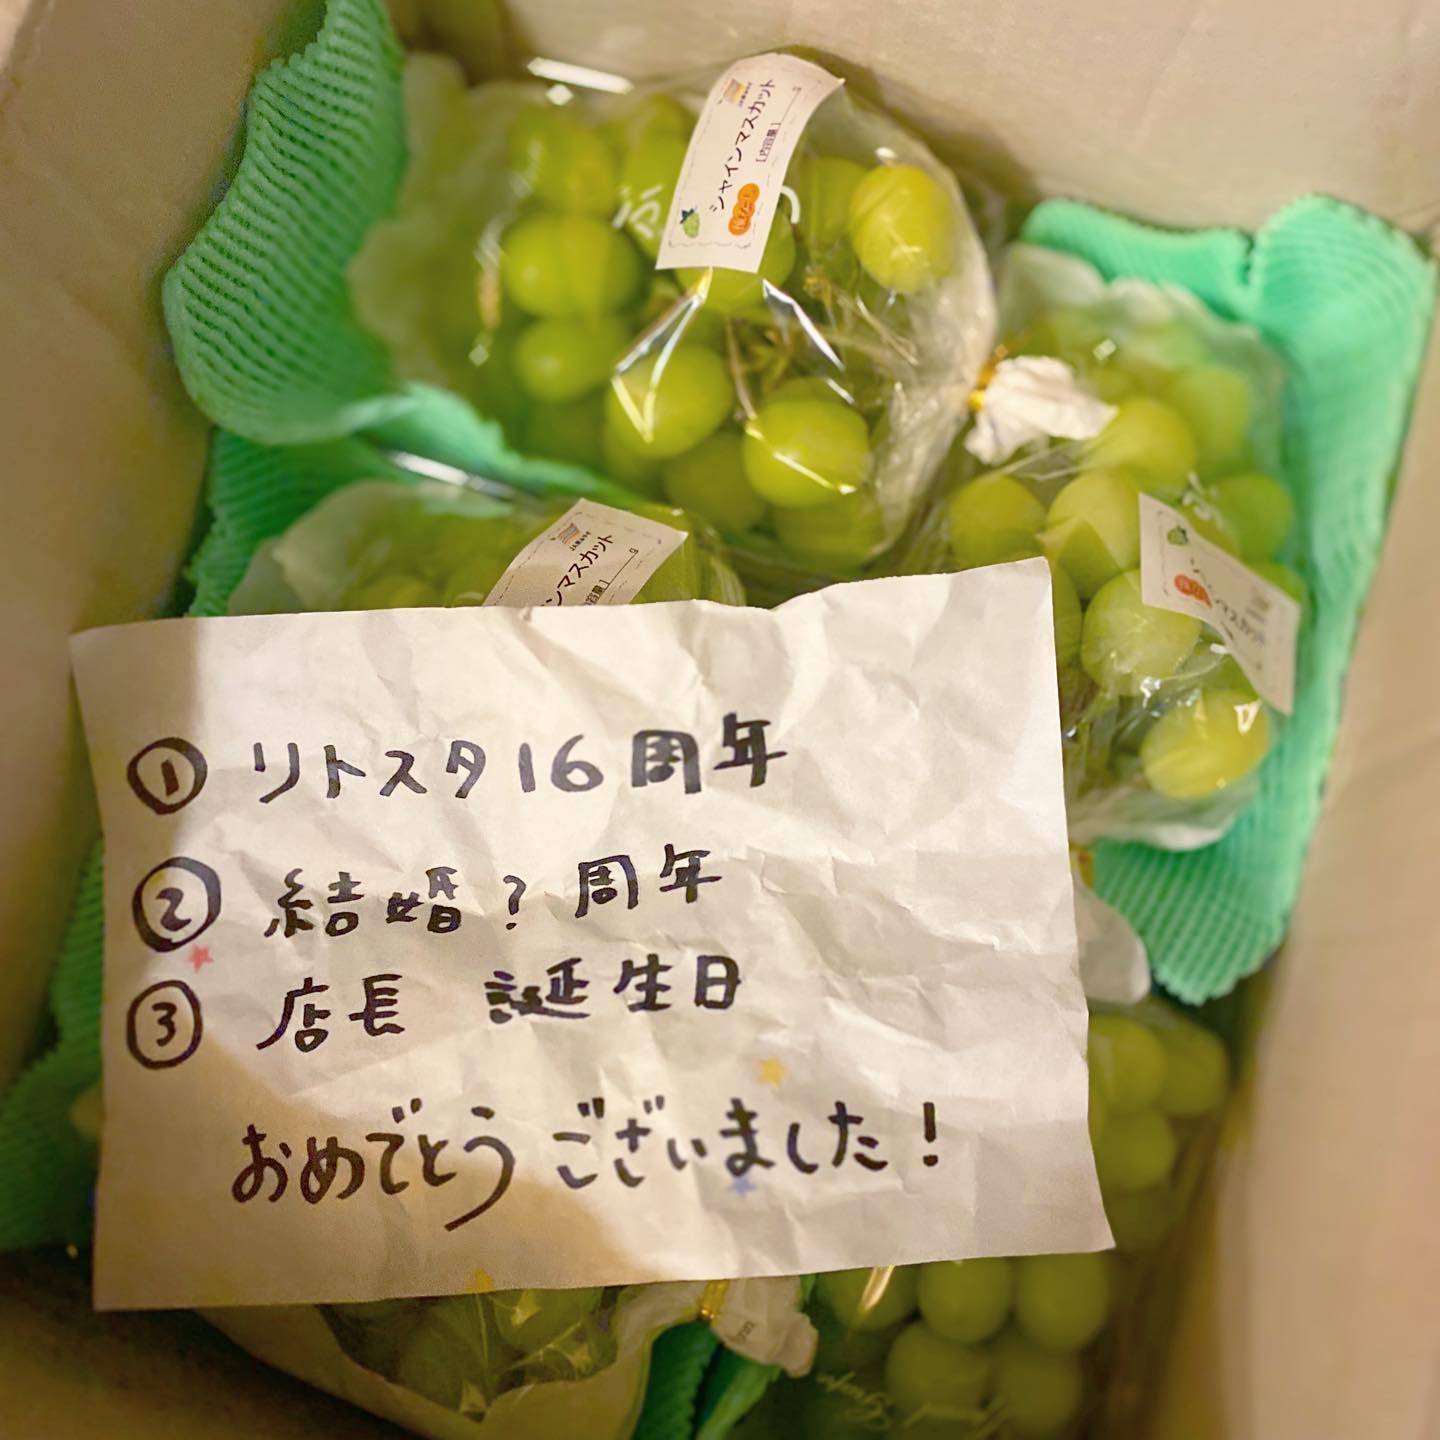 シャインマスカット
[内容量]
g
種なし
ンマスカット
g
マスカット
① リトスタ16周年
② 結婚?周年
③ 店長 誕生日
おめでとうございました!